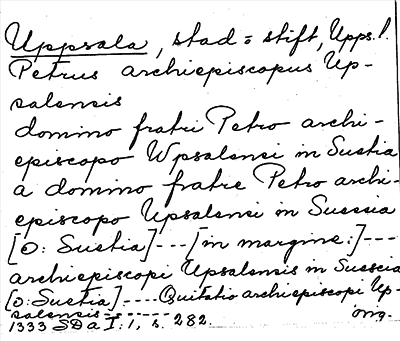 Uppsala, stad = stift, Upps. l.
Petrus archiepiscopus Up-
salensis
domino fratri Petro archi-
episcopo Wpsalensi in Suetia
a domino fratre Petro archi-
episcopo Upsalensi in Suessia
[ɔ: Suetia]---[in margine:]----
archiepiscopi Upsalensis in Suescia
[ɔ: Suetia]----Quitatio archiepiscopi Up-
salensis-------
1333 SDa I: 1, s. 282. orig.